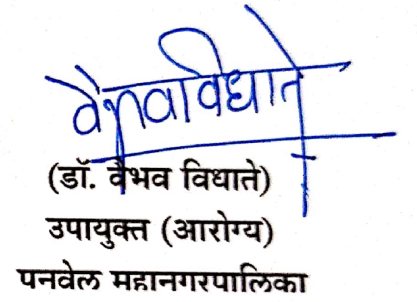 वैभवविधाते
(डॉ. वैभव विधाते)
उपायुक्त (आरोग्य)
पनवेल महानगरपालिका